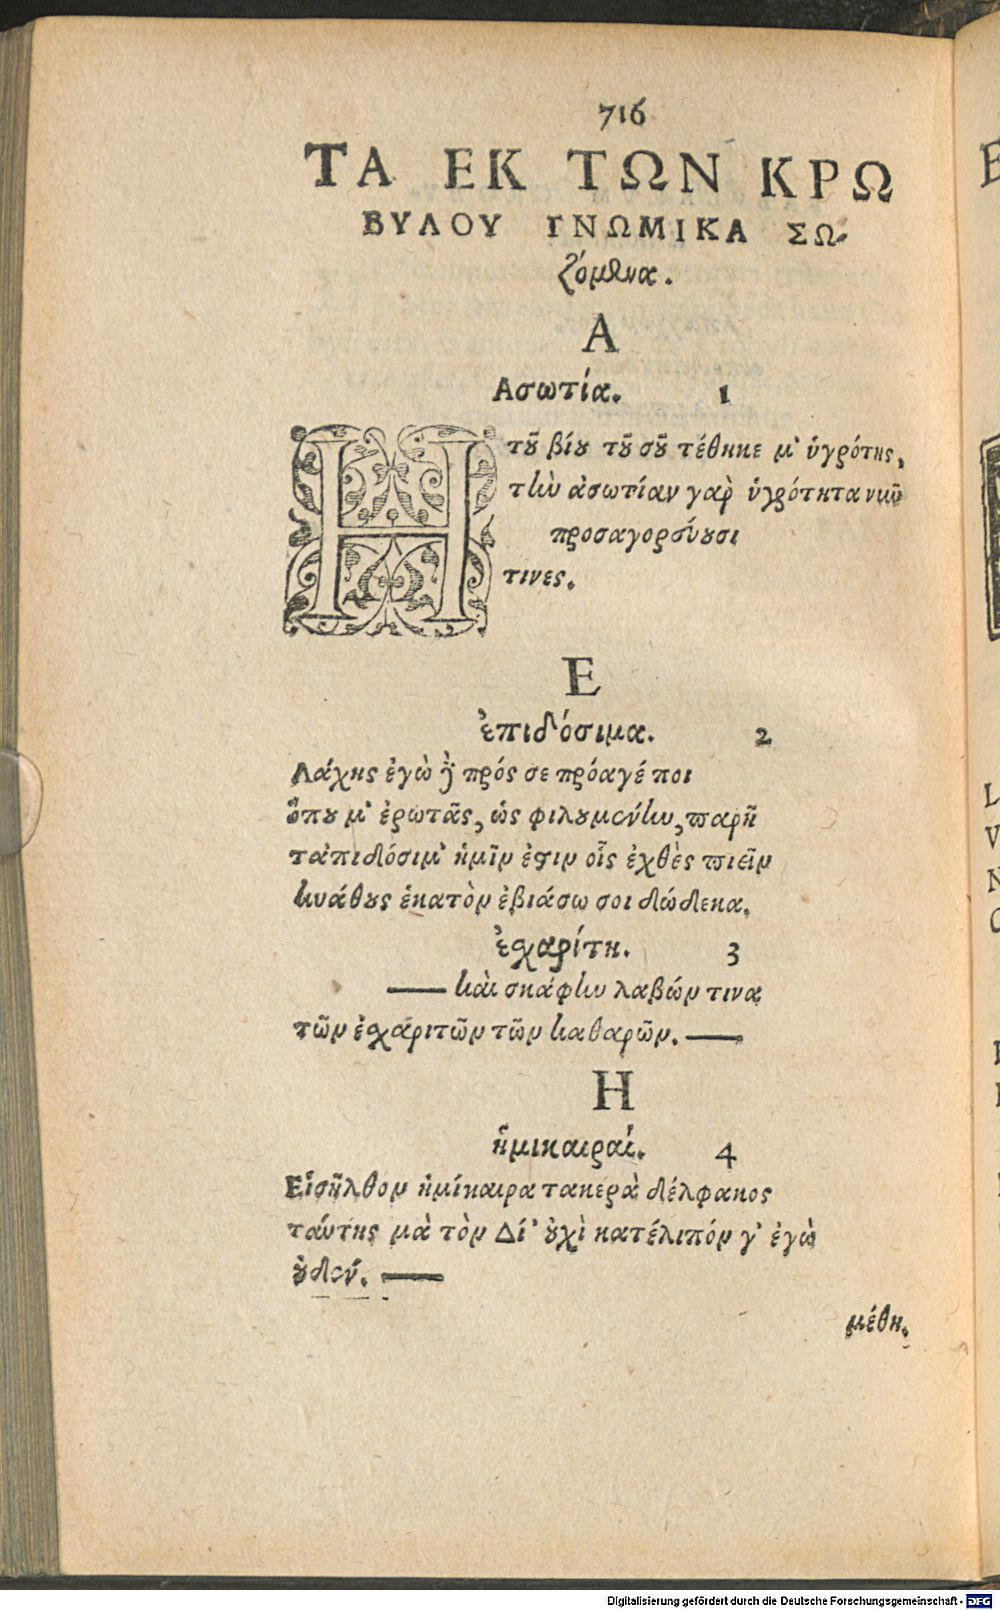 716
ΤΑ ΕΚ ΤΩΝ ΚΡΩ
ΒΥΛΟΥ ΓΝΩΜΙΚΑ ΣΩ-
ζόμενα.
Α
Ασωτία. 1
Η τοῦ βίου τοῦ σοῦ τέθηκε μ' ὑγρότης,
τὴν ἀσωτίαν γὰρ ὑγρότητα νῦν
προσαγορεύουσι
τινες.
Ε
ἐπιδόσιμα. 2
Λάχης ἐγὼ ἢ πρός σε πρόαγέ ποι
ὅπου μ' ἐρωτᾶς, ὡς φιλουμένην, παρῆ
ταπιδόσιμ' ἡμῖν ἐστιν οἷς ἐχθὲς πιεῖν
κυάθους ἑκατὸν ἐβιάσω σοι δώδεκα.
ἐσχαρίτη. 3
— καὶ σκάφην λαβών τινα
τῶν ἐσχάριτῶν τῶν καθαρῶν. —
Η
ἡμικαιραί. 4
Εἰσῆλθον ἡμίκαιρα τακερὰ δέλφακος
ταύτης μὰ τὸν Δί' οὐχὶ κατέλιπόν γ' ἐγὼ
οὐδέν. —
μέθη.
Digitalisierung gefördert durch die Deutsche Forschungsgemeinschaft - DFG